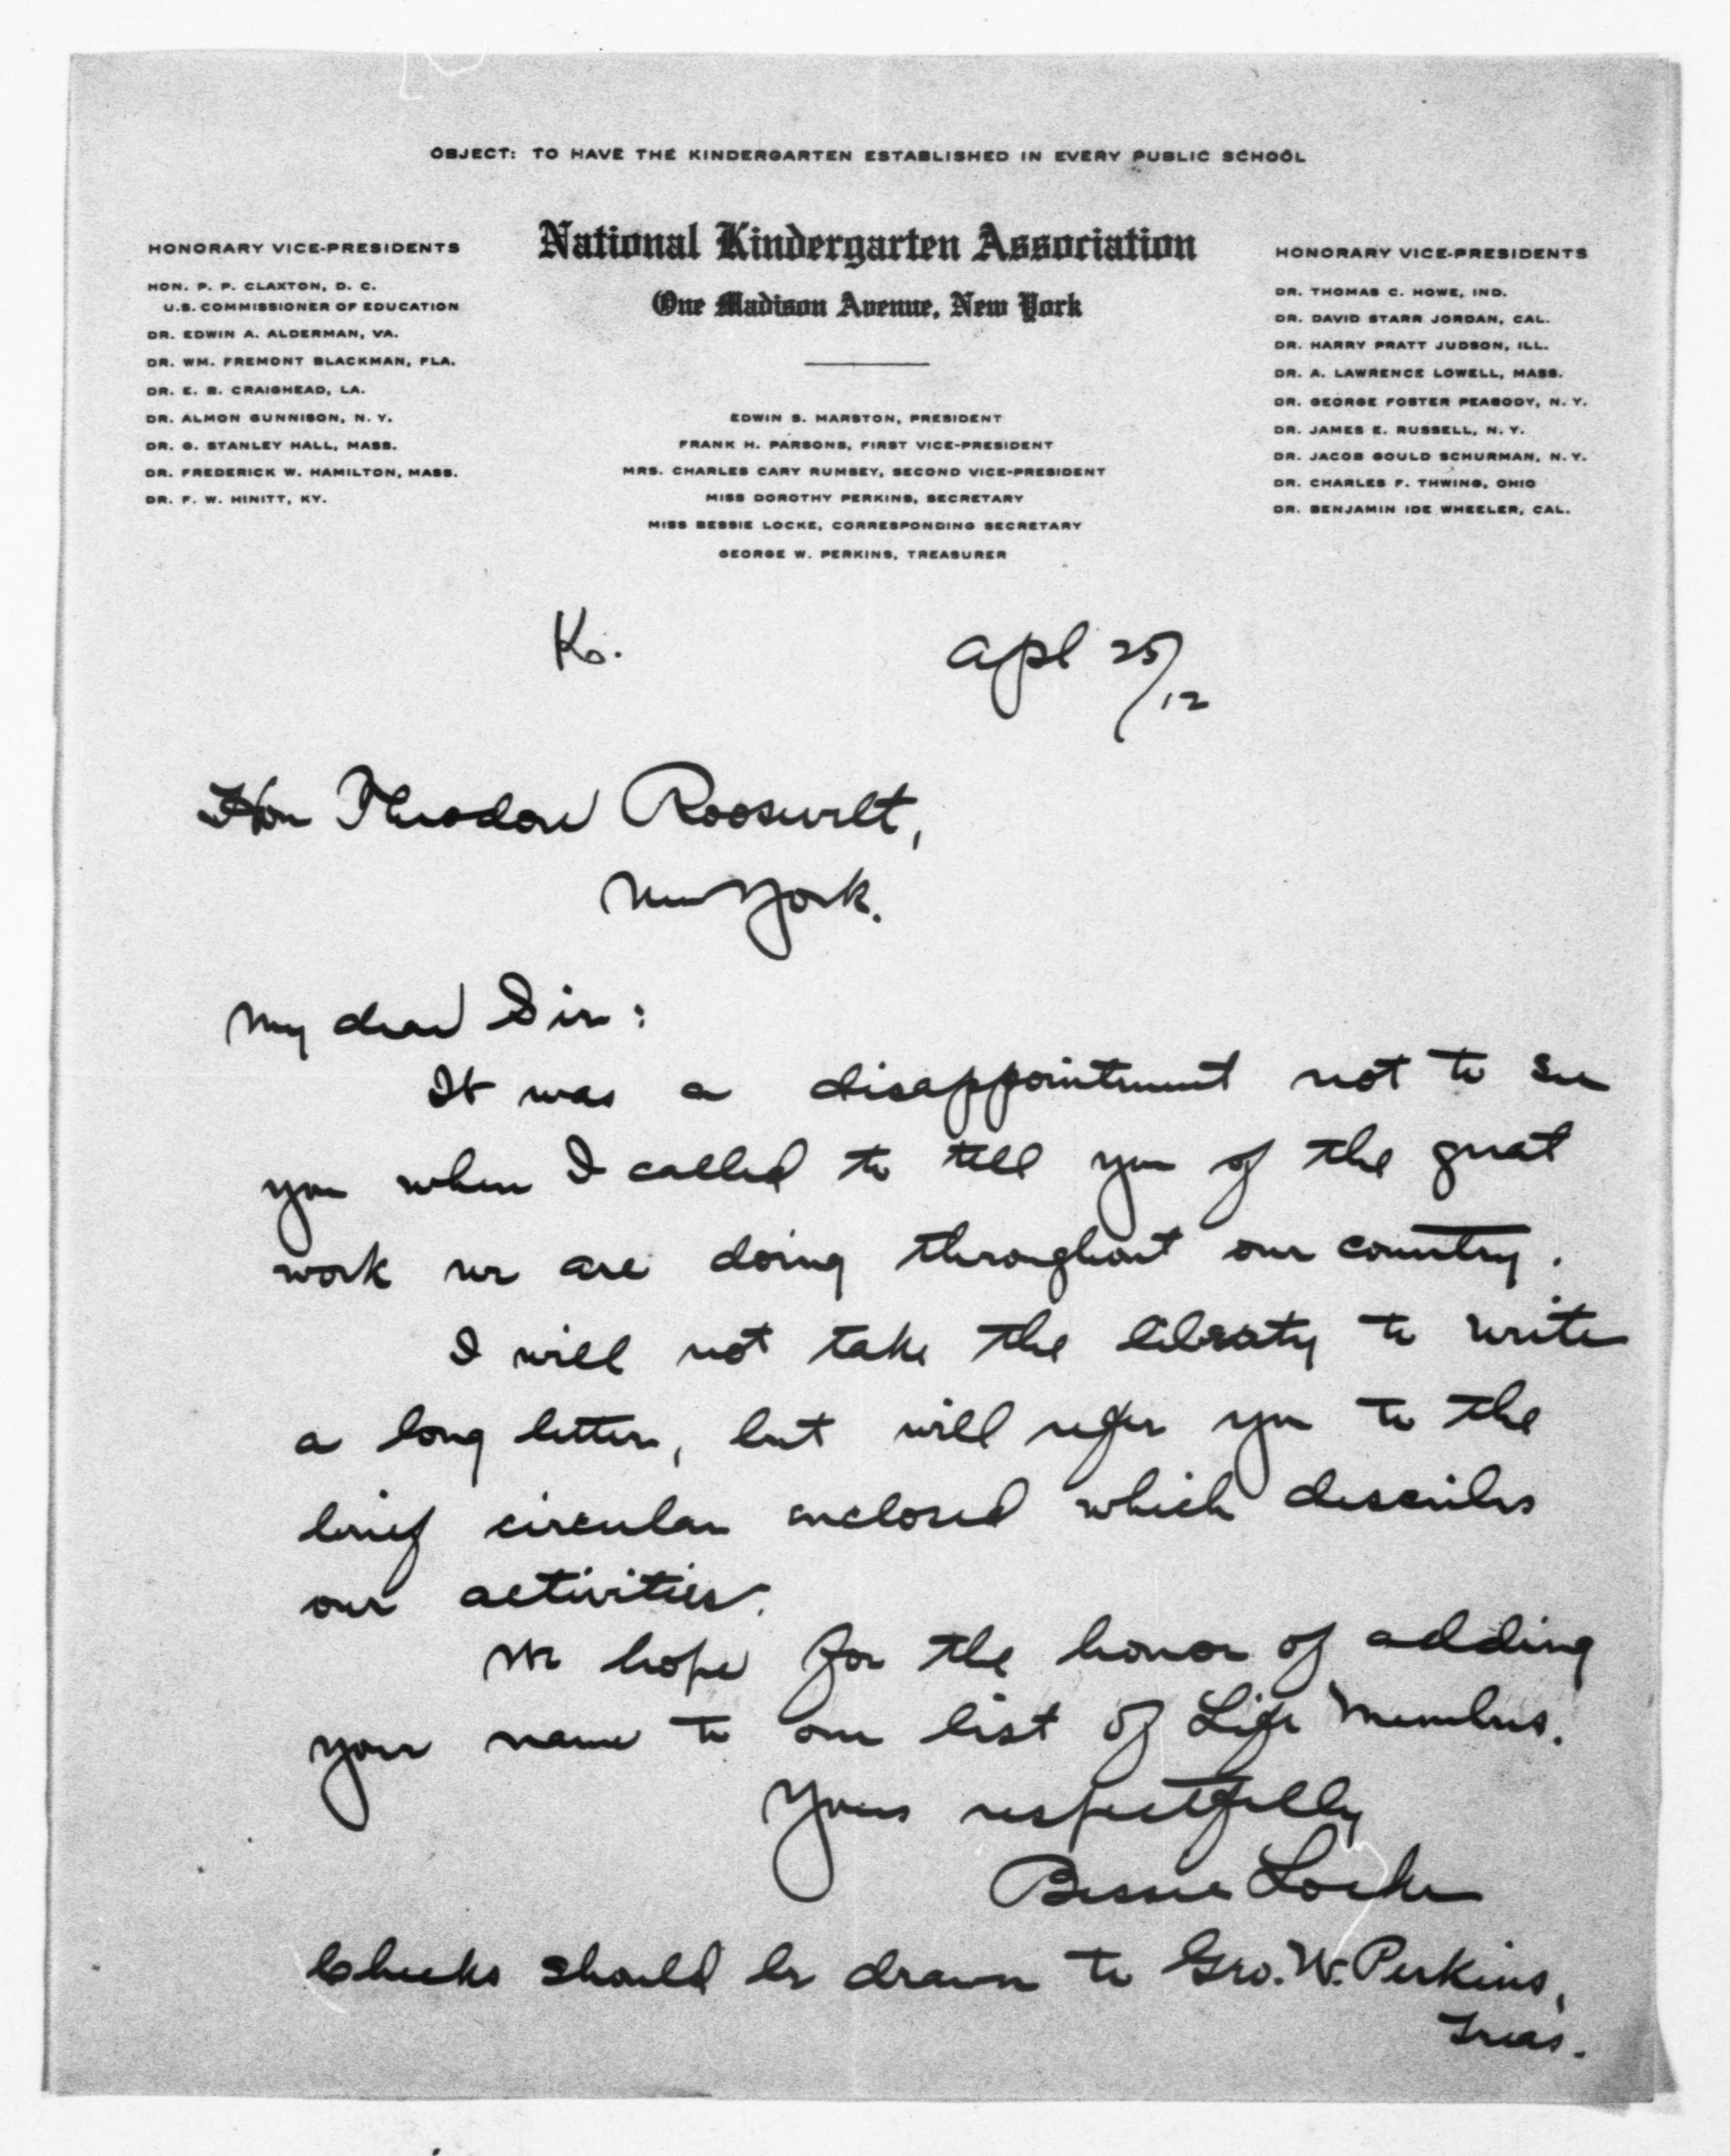 OBJECT: TO HAVE THE KINDERGARTEN ESTABLISHED IN EVERY PUBLIC SCHOOL
National Kindergarten Association
One Madison Avenue, New York
HONORARY VICE-PRESIDENTS
HON. P. P. CLAXTON, D. C.
U.S. COMMISSIONER OF EDUCATION
DR. EDWIN A. ALDERMAN, VA.
DR. WM. FREMONT BLACKMAN, FLA.
DR. E. B. CRAIGHEAD, LA.
DR. ALMON GUNNISON, N. Y.
DR. G. STANLEY HALL, MASS.
DR. FREDERICK W. HAMILTON, MASS.
DR. F. W. HINITT, KY.
EDWIN S. MARSTON, PRESIDENT
FRANK H. PARSONS, FIRST VICE-PRESIDENT
MRS. CHARLES CARY RUMSEY, SECOND VICE-PRESIDENT
MISS DOROTHY PERKINS, SECRETARY
MISS BESSIE LOCKE, CORRESPONDING SECRETARY
GEORGE W. PERKINS, TREASURER
HONORARY VICE-PRESIDENTS
DR. THOMAS C. HOWE, IND.
DR. DAVID STARR JORDAN, CAL.
DR. HARRY PRATT JUDSON, ILL.
DR. A. LAWRENCE LOWELL, MASS.
DR. GEORGE FOSTER PEABODY, N. Y.
DR. JAMES E. RUSSELL, N. Y.
DR. JACOB GOULD SCHURMAN, N. Y.
DR. CHARLES F. THWING, OHIO
DR. BENJAMIN IDE WHEELER, CAL.
Apl 25/12
Hon Theodore Roosevelt,
New York.
My dear Sir:
It was a disappointment not to see
you when I called to tell you of the great
work we are doing throughout our country.
I will not take the liberty to write
a long letter, but will refer you to the
brief circular enclosed which describes
our activities.
We hope for the honor of adding
your name to our list of Life Members.
Yours respectfully
Bessie Locke
Checks should be drawn to Geo. W. Perkins,
Treas.